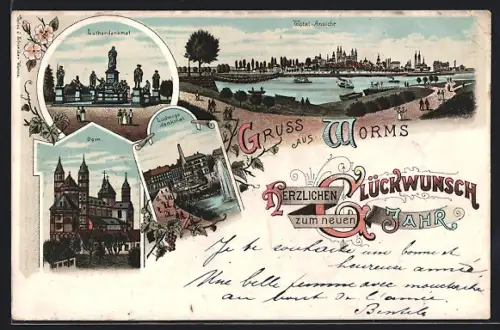 Lutherdenkmal
Total-Ansicht
Dom.
Ludwigs-
denkmal
GRUSS
AUS
WORMS
HERZLICHEN GLÜCKWUNSCH
zum neuen JAHR
Je te souhaite une bonne et
heureuse année
Une belle femme avec moustache
au bout de l'année.